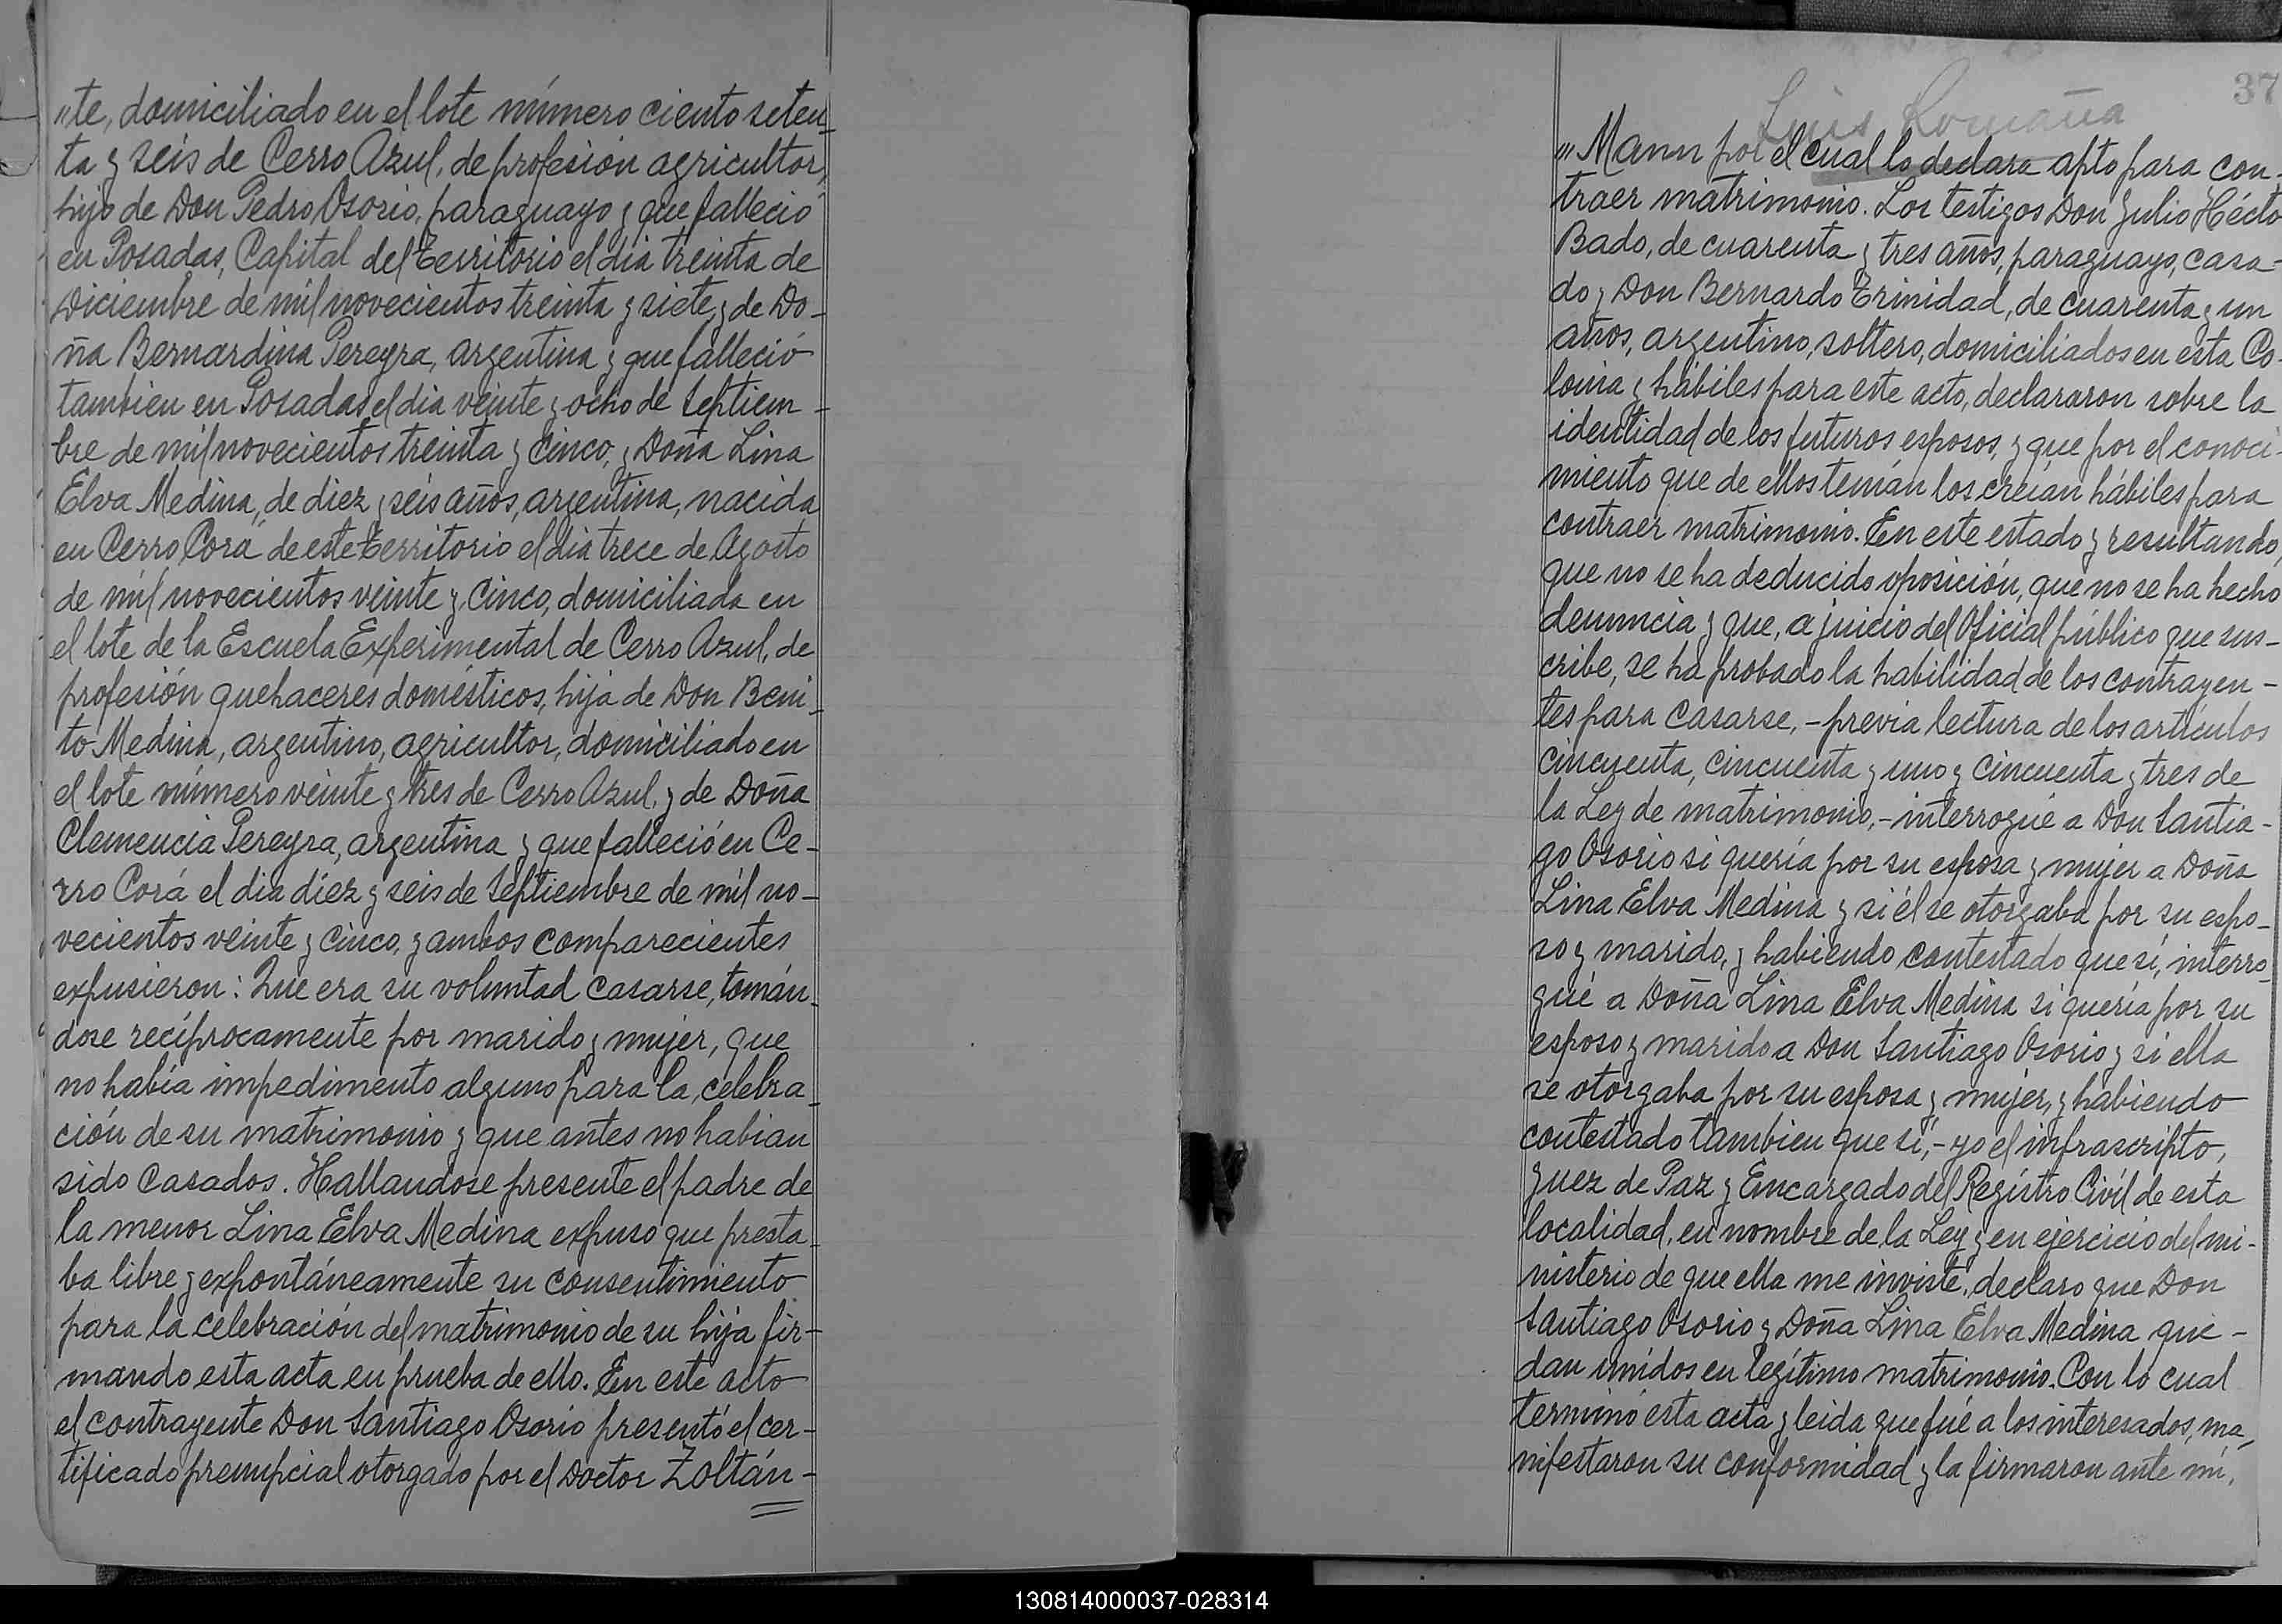 "te, domiciliado en el lote número ciento seten_
ta y seis de Cerro Azul, de profesión agricultor,
hijo de Don Pedro Osorio, paraguayo y que falleció
en Posadas, Capital del Territorio el dia treinta de
Diciembre de mil novecientos treinta y siete y de Do-
ña Bernardina Pereyra, argentina y que falleció
tambien en Posadas el dia veinte y ocho de Septiem-
bre de mil novecientos treinta y cinco, y Doña Lina
Elva Medina, de diez y seis años, argentina, nacida
en Cerro Corá de este Territorio el dia trece de Agosto
de mil novecientos veinte y cinco, domiciliada en
el lote de la Escuela Experimental de Cerro Azul, de
profesión quehaceres domésticos, hija de Don Beni_
to Medina, argentino, agricultor, domiciliado en
el lote número veinte y tres de Cerro Azul, y de Doña
Clemencia Pereyra, argentina y que falleció en Ce-
rro Corá el dia diez y seis de Septiembre de mil no-
vecientos veinte y cinco, y ambos comparecientes
expusieron: Que era su voluntad casarse, tomán_
dose recíprocamente por marido y mujer, que
no había impedimento alguno para la celebra_
ción de su matrimonio y que antes no habian
sido casados. Hallandose presente el padre de
la menor Lina Elva Medina expuso que presta_
ba libre y expontáneamente su consentimiento
para la celebración del matrimonio de su hija fir-
mando esta acta en prueba de ello. En este acto
el contrayente Don Santiago Osorio presentó el cer-
tificado prenupcial otorgado por el Doctor Zoltán-
37
Luis Romaña
"Mann por el cual lo declara apto para con-
traer matrimonio. Los testigos Don Julio Hécto
Bado, de cuarenta y tres años, paraguayo, casa-
do y Don Bernardo Trinidad, de cuarenta y un
años, argentino, soltero, domiciliados en esta Co-
lonia y hábiles para este acto, declararon sobre la
identidad de los futuros esposos, y que por el conoci-
miento que de ellos tenían los creían hábiles para
contraer matrimonio. En este estado y resultando,
que no se ha deducido oposición, que no se ha hecho
denuncia y que, a juicio del Oficial público que sus-
cribe, se ha probado la habilidad de los contrayen-
tes para casarse,- previa lectura de los artículos
cincuenta, cincuenta y uno y cincuenta y tres de
la Ley de matrimonio,- interrogué a Don Santia-
go Osorio si quería por su esposa y mujer a Doña
Lina Elva Medina y si él se otorgaba por su espo_
so y marido, y habiendo contestado que sí, interro_
gué a Doña Lina Elva Medina si quería por su
esposo y marido a Don Santiago Osorio y si ella
se otorgaba por su esposa y mujer, y habiendo
contestado tambien que sí,- yo el infrascripto,
Juez de Paz y Encargado del Registro Civil de esta
localidad, en nombre de la Ley y en ejercicio del mi-
nisterio de que ella me inviste, declaro que Don
Santiago Osorio y Doña Lina Elva Medina que-
dan unidos en legítimo matrimonio. Con lo cual
terminó esta acta y leida que fué a los interesados, ma_
nifestaron su conformidad y la firmaron ante mí,
130814000037-028314